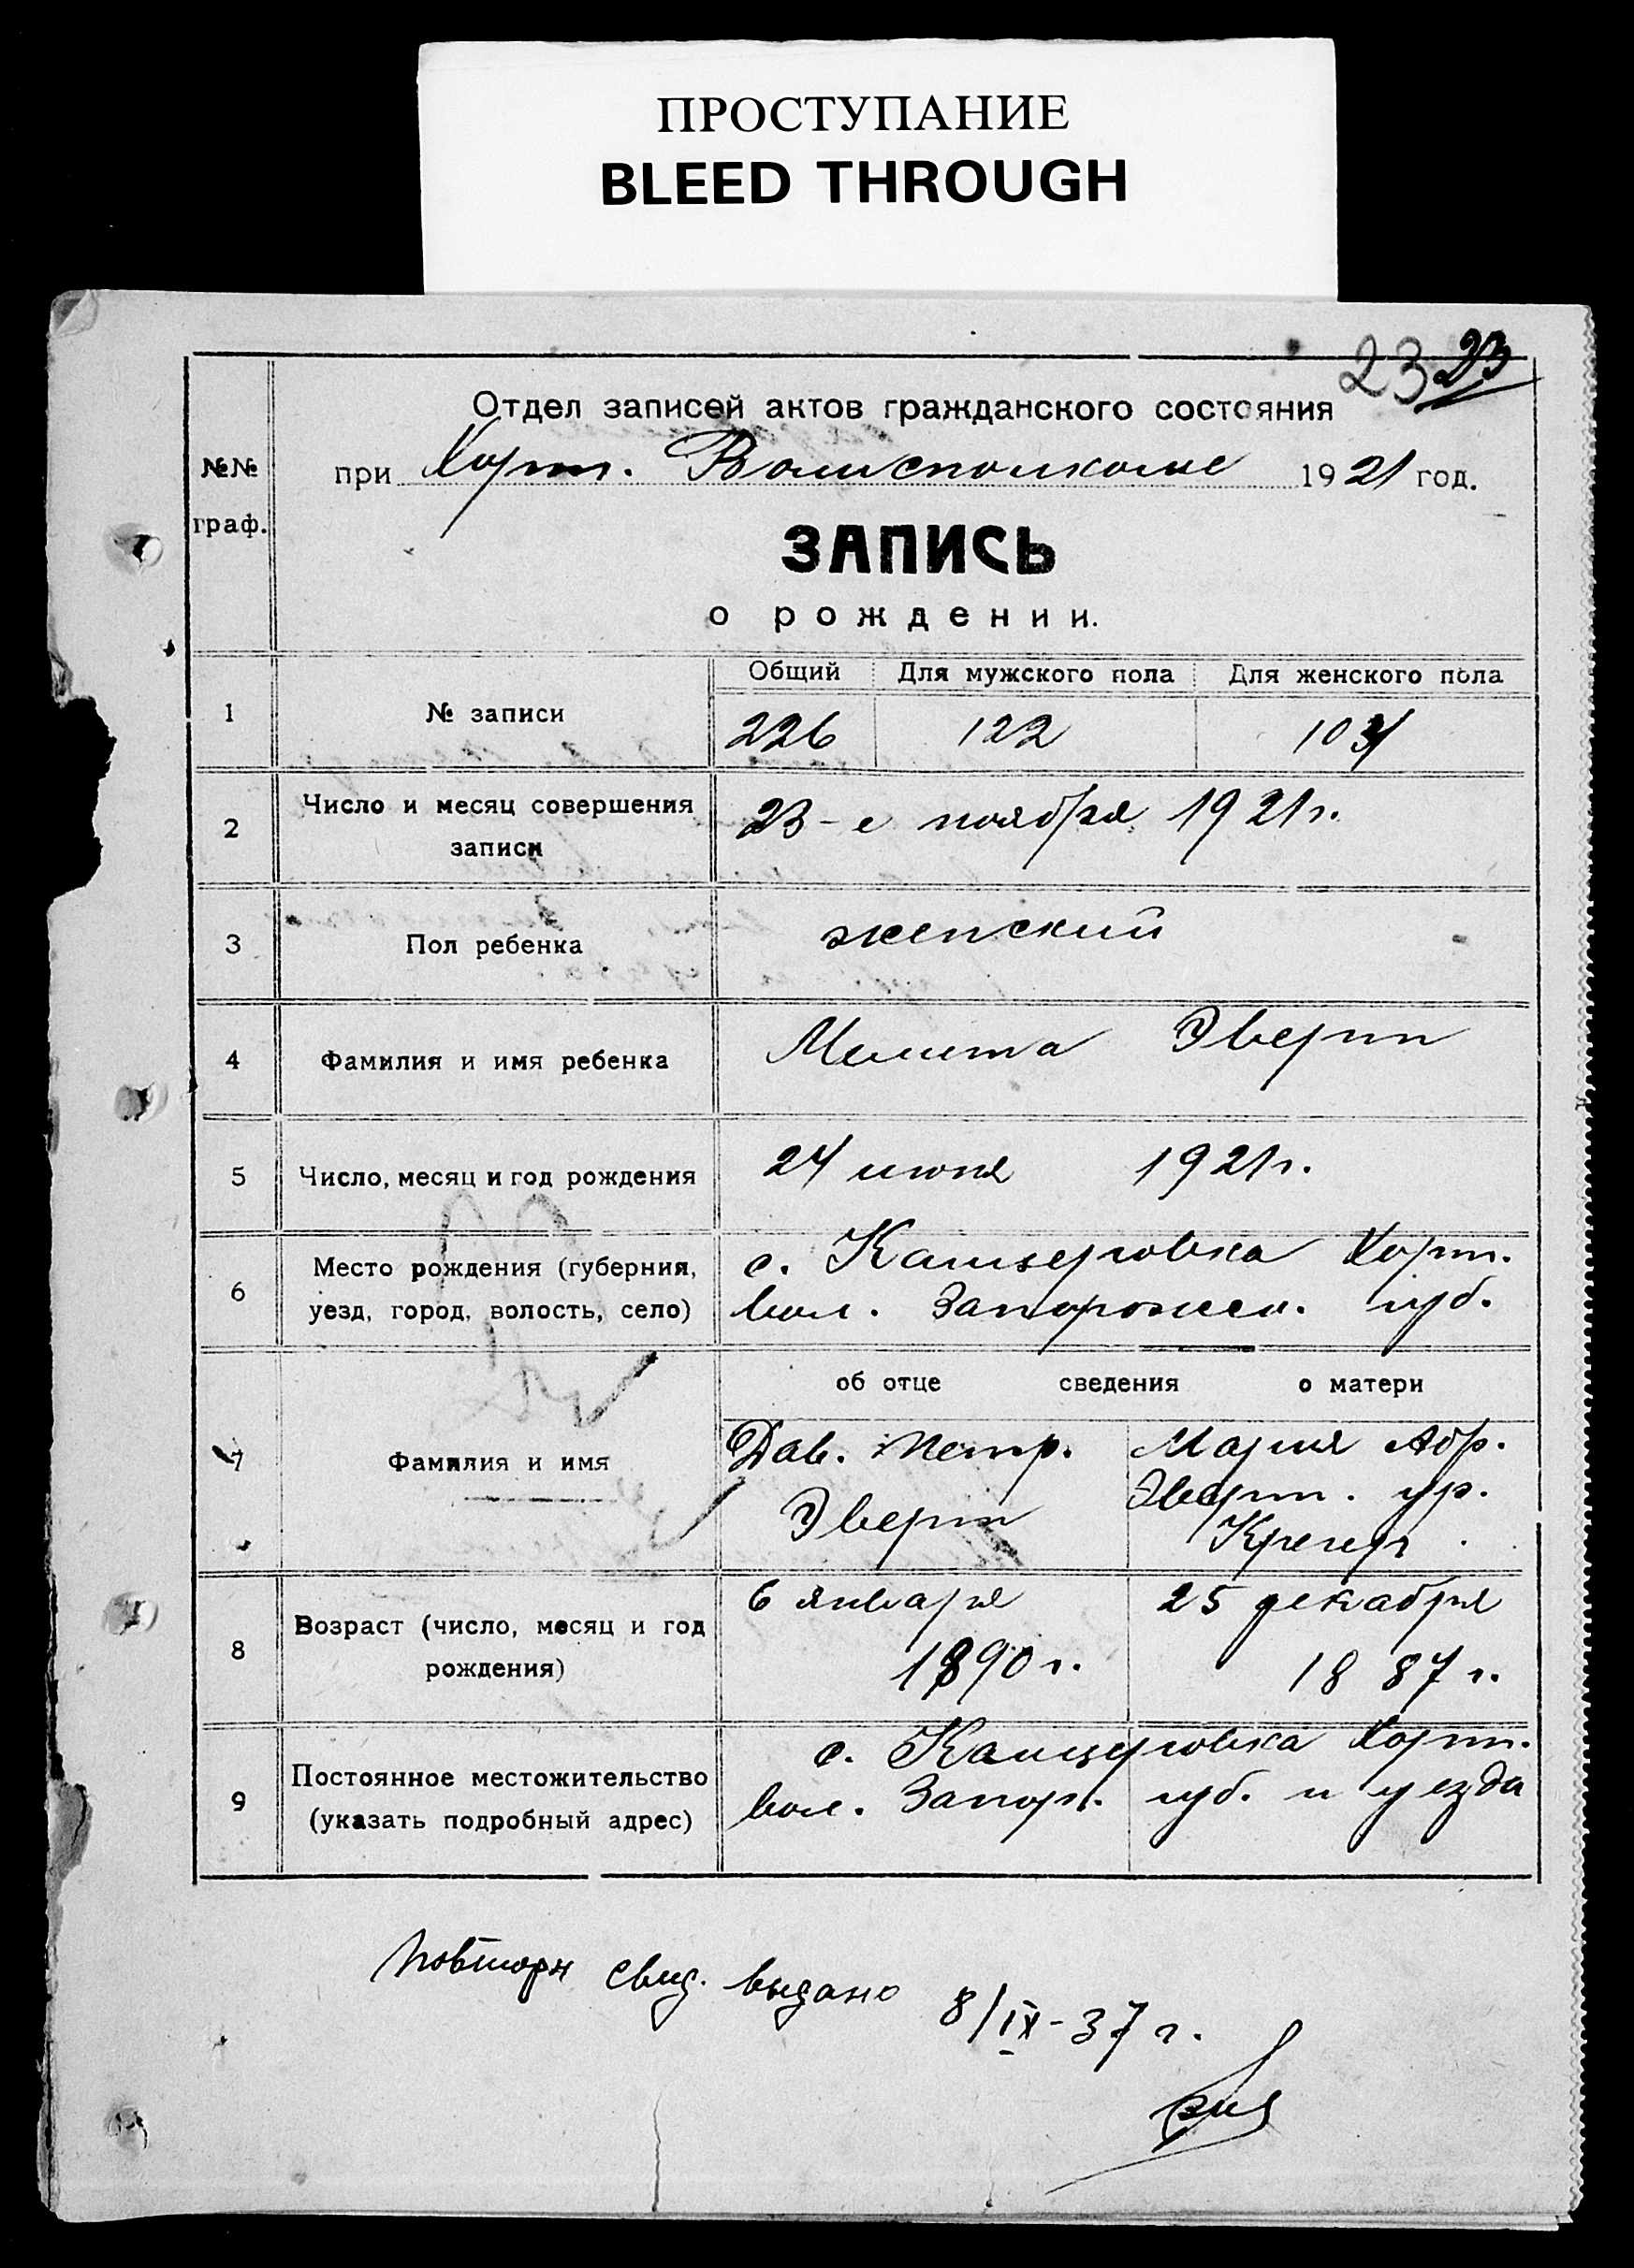 ПРОСТУПАНИЕ
BLEED THROUGH
23 23
Отдел записей актов гражданского состояния
№№ граф.
при Хорт. Волисполкоме 1921 год.
ЗАПИСЬ
о рождении.
Общий Для мужского пола Для женского пола
1 № записи 226 122 104
2 Число и месяц совершения записи 23-е ноября 1921 г.
3 Пол ребенка женский
4 Фамилия и имя ребенка Мелита Эверт
5 Число, месяц и год рождения 24 июня 1921 г.
6 Место рождения (губерния, с. Канцеровка Хорт.
уезд, город, волость, село) вол. Запорожск. губ.
об отце сведения о матери
7 Фамилия и имя
Дав. Петр. Мария Абр.
Эверт Эверт. ур.
8 Возраст (число, месяц и год 6 января 25 декабря
рождения) 1890 г. 1887 г.
9 Постоянное местожительство с. Канцеровка Хорт.
(указать подробный адрес) вол. Запор. губ. и уезда
Повторн свид. выдано 8/IX-37 г.